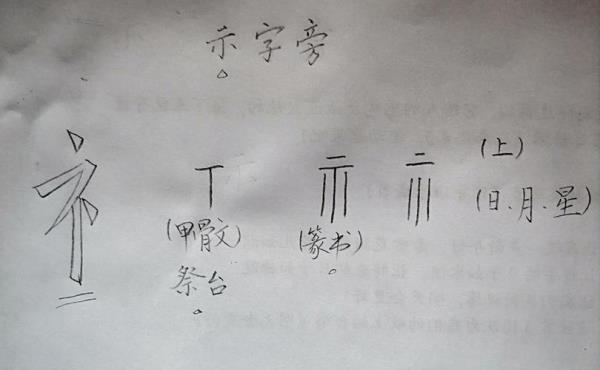 示字旁
礻 丅 二 (上)
(日.月.星)
(甲骨文) (篆书)
祭台